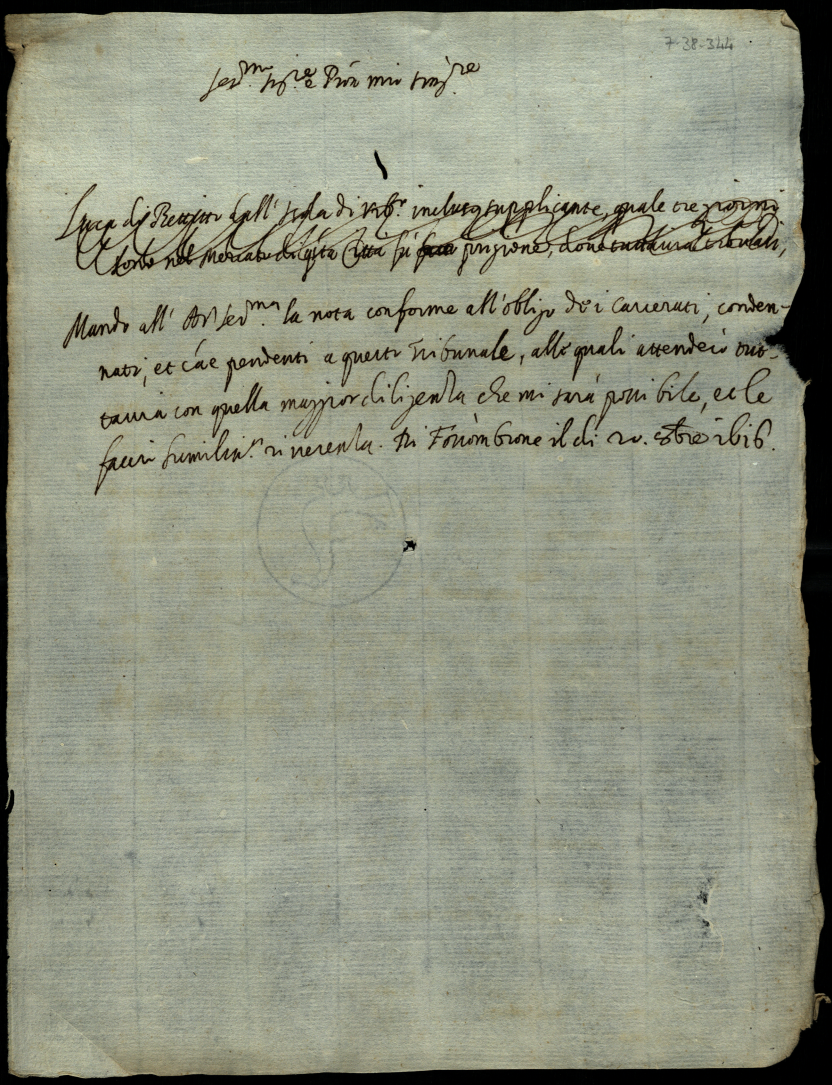 7-38-344
Ser.ma Sig.re e Pron mio sing.re
Luca di dall' Isola di supplicante, quale tre giorni
nel Mercato di q.sta Città fù prigione, dove tuttavia
Mando all' Ser.ma la nota conforme all'obligo de i carcerati, conden-
nati, et cáe pendenti a questo Tribunale, alle quali attenderò tut-
tavia con quella maggior diligenza che mi sarà possibile, et le
faccio humiliss.a riverenza. Di Fossombrone il dì 20. 8bre 1616.